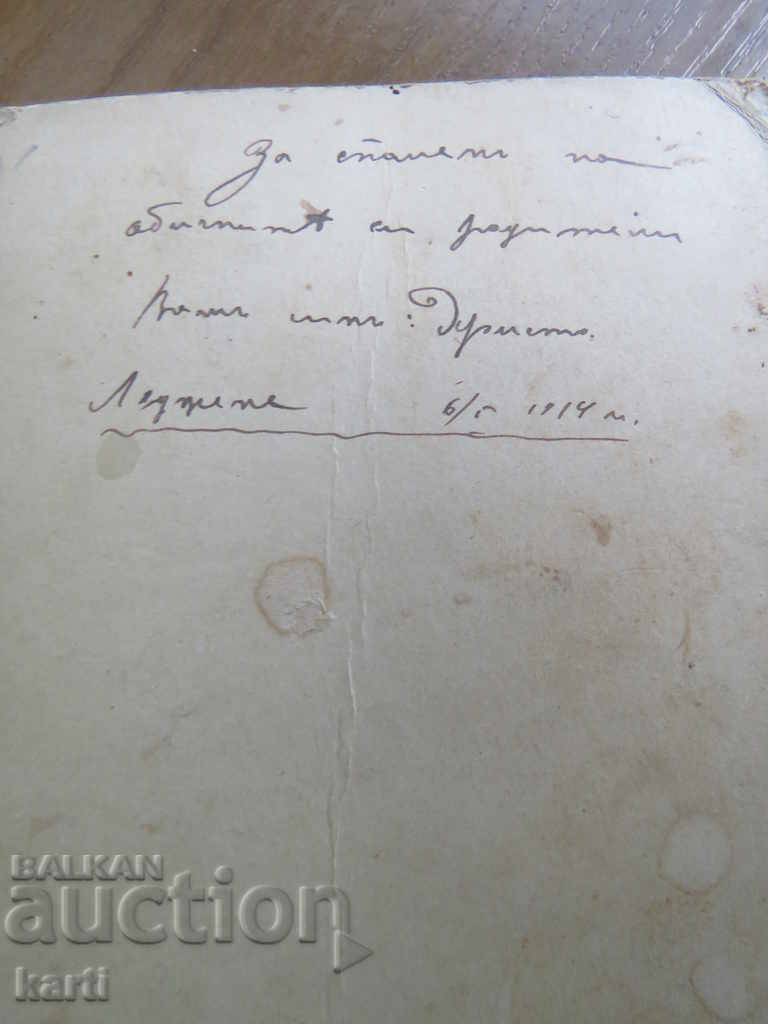 За спомень на
обичнитѣ си родители
Вашъ синъ:
Леджене 6/V 1914 г.
BALKAN
auction
karti